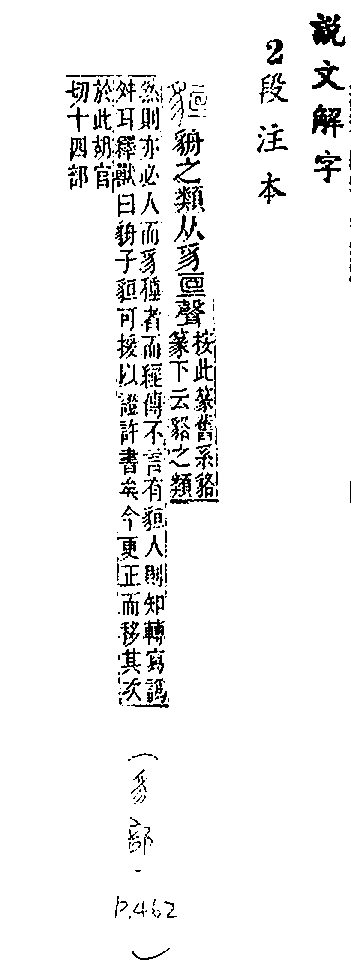 說文解字
2段注本
貆貈之類从豸亘聲
按此篆舊系貉
篆下云貉之類
然則亦必人而豸種者而經傳不言有貆人則知轉寫譌
舛耳釋獸曰貈子貆可援以證許書矣今更正而移其次
於此胡官
切十四部
(豸部·P.462)